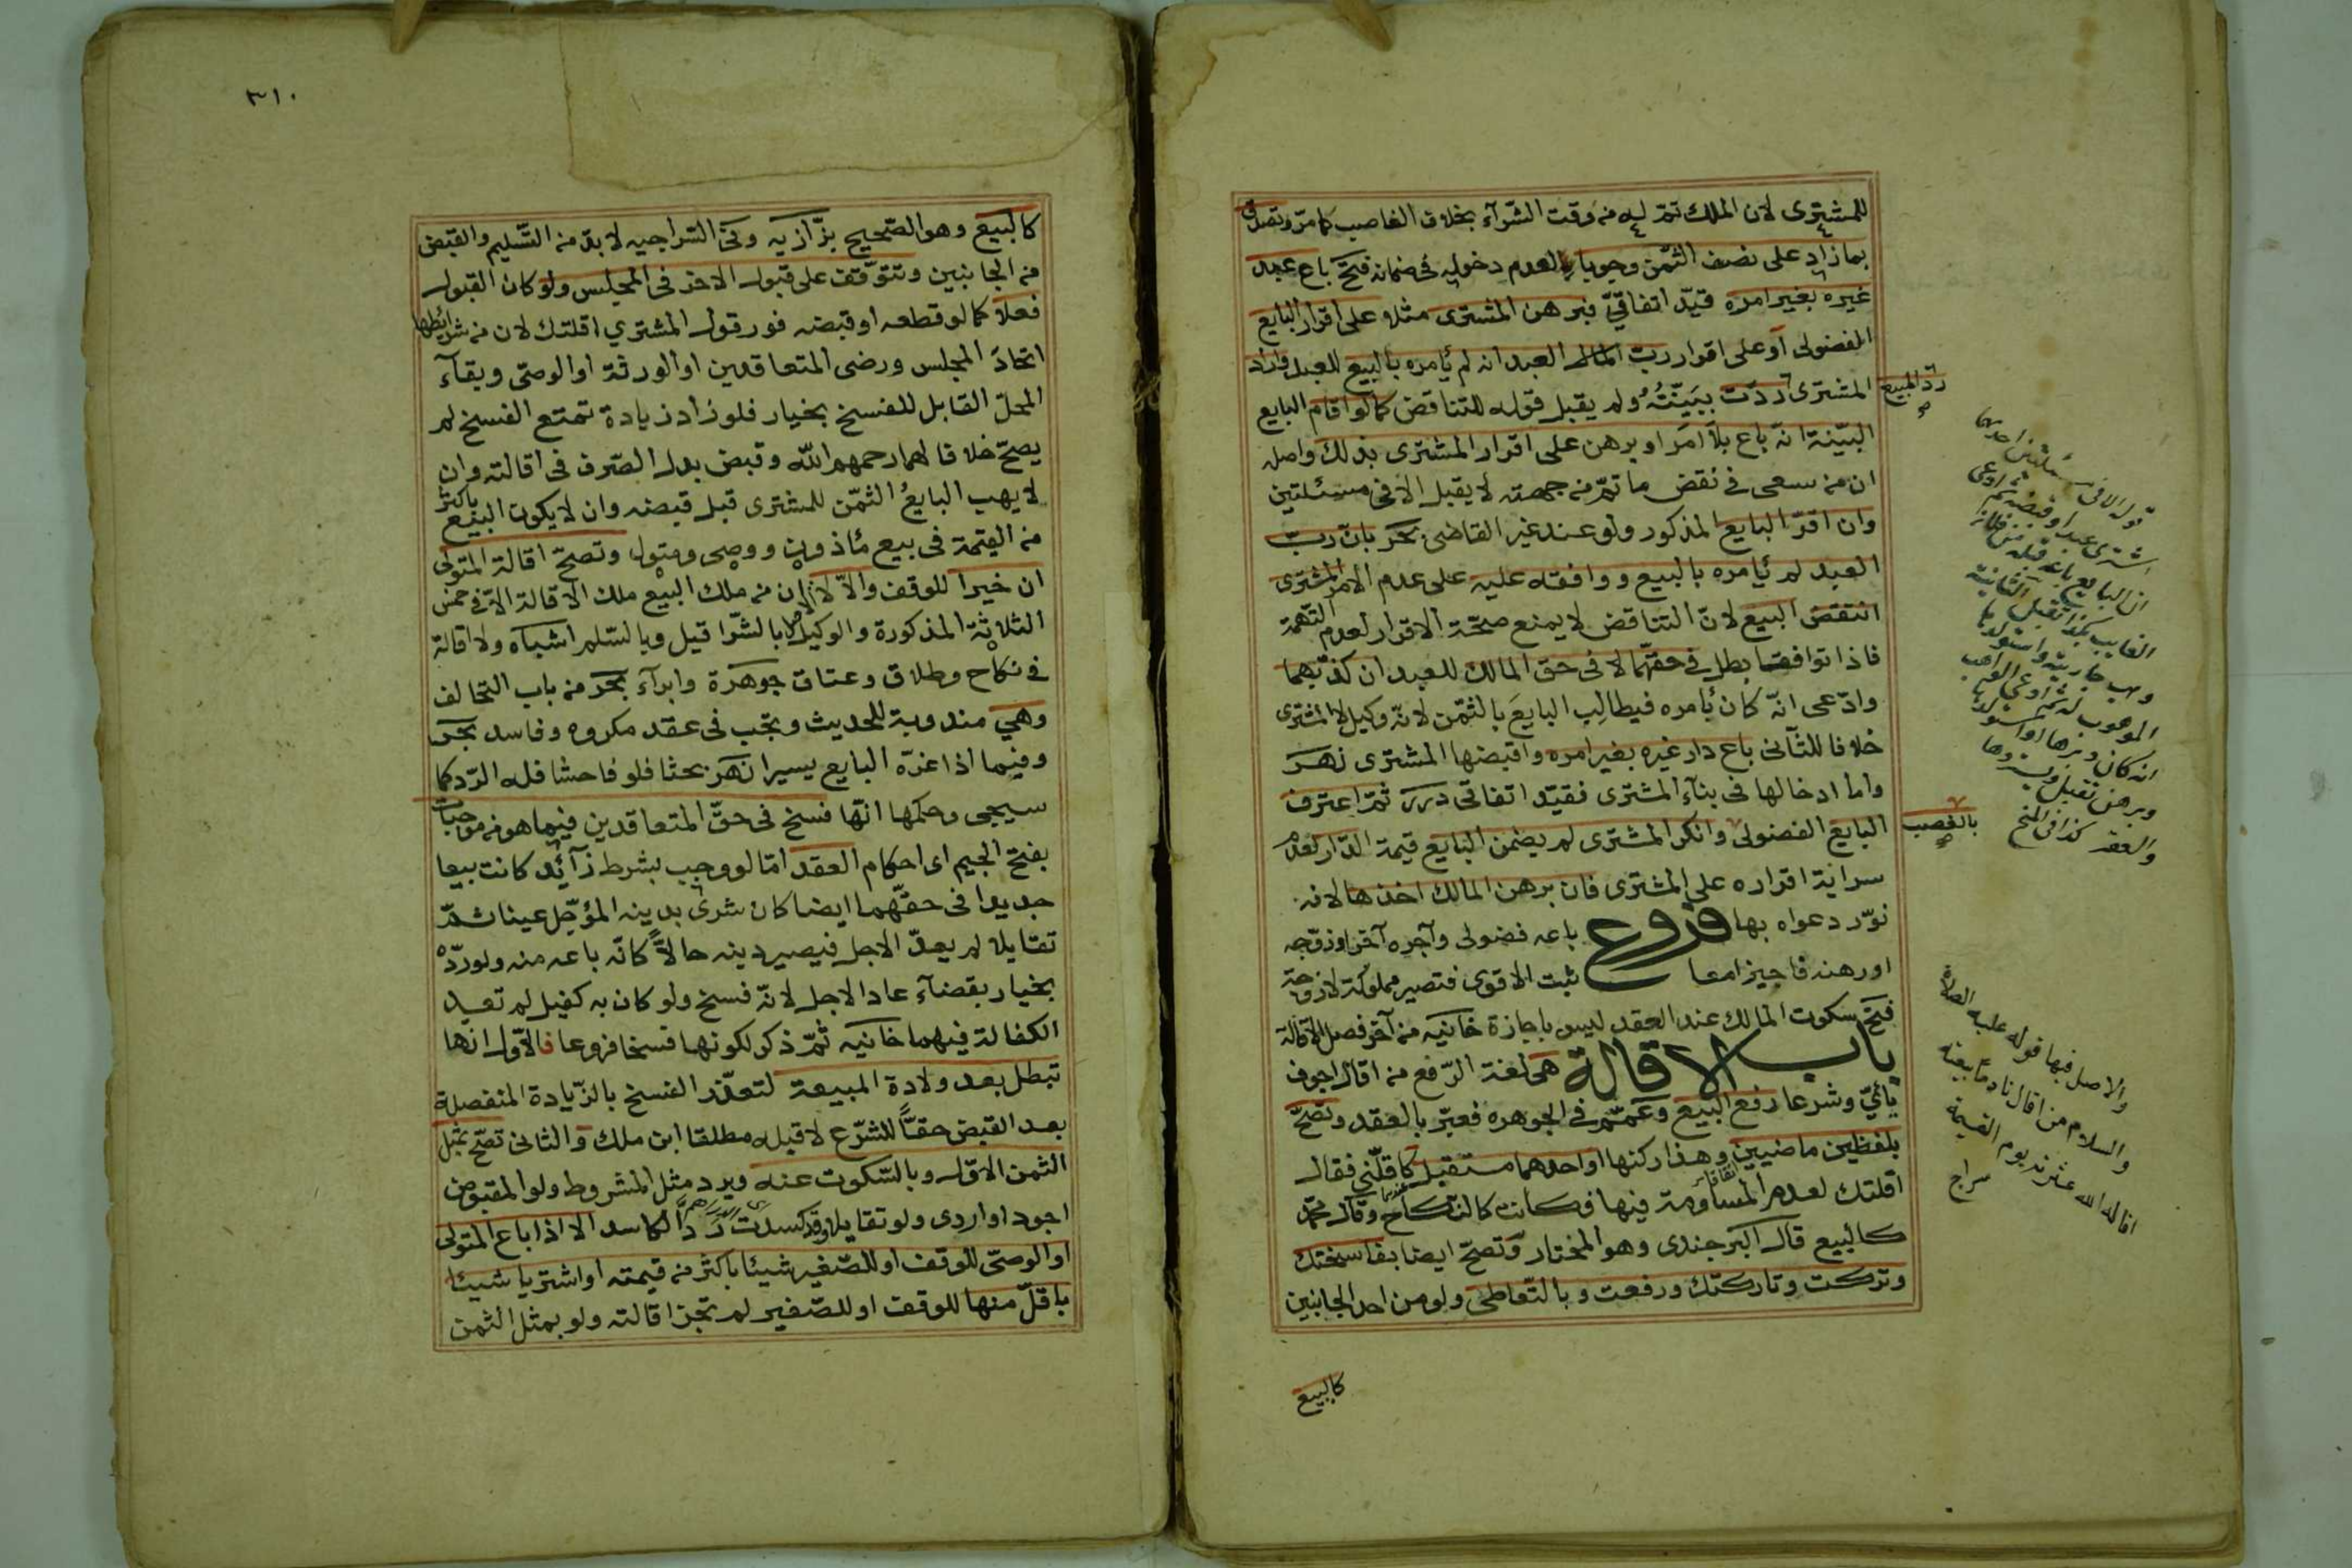 للمشترى لان الملك تم له من وقت الشرآء بخلاف الغاصب كما مر وتصدق
بما زاد على نصف الثمن وجوبا لعدم دخوله فى ضمانه فتح باع عبد
غيره بغير امره قيد اتفاقي فبرهن المشترى مثلا على اقرار البايع
الفضولى او على اقرار رب العبد انه لم يأمره بالبيع للعبد واراد
المشترى رد المبيع ردت ببينته ولم يقبل قوله للتناقض كما لو اقام البايع
البينة انه باع بلا امر او برهن على اقرار المشترى بذلك واصله
ان من سعى فى نقض ما تم من جهته لا يقبل الا فى مسئلتين
وان اقر البايع المذكور ولو عند غير القاضى بحر بان رب
العبد لم يأمره بالبيع ووافقه عليه على عدم الامر المشترى
انتقض البيع لان التناقض لا يمنع صحة الاقرار لعدم التهمة
فاذا توافقا بطل فى حقهما لا فى حق المالك للعبد ان كذبهما
وادعى انه كان بأمره فيطالب البايع بالثمن لانه وكيل لا المشترى
خلافا للثانى باع دار غيره بغير امره واقبضها المشترى نهر
واما ادخالها فى بنآء المشترى فقيد اتفاقى درر ثم اعترف
البايع الفضولى بالغصب وانكر المشترى لم يضمن البايع قيمة الدار لعدم
سراية اقراره على المشترى فان برهن المالك اخذها لانه
نور دعواه بها فروع باعه فضولى وآجره آخر او زوجه
او رهنه فاجيزا معا ثبت الاقوى فتصير مملوكة لا زوجة
فتح سكوت المالك عند العقد ليس باجازة خانيه من آخر فصل الاقالة
باب الاقالة هى لغة الرفع من اقال اجوف
يائي وشرعا رفع البيع وعمم فى الجوهره فعبر بالعقد وتصح
بلفظين ماضيين وهذا ركنها او احدهما مستقبل كاقلنى فقال
اقلتك لعدم المساومة فيها فكانت كالنكاح وقال محمد
كالبيع قال البرجندى وهو المختار وتصح ايضا بفاسختك
وتركت وتاركتك ورفعت وبالتعاطى ولو من احد الجانبين
كالبيع
قوله الا فى مسئلتين احدىهما
اشترى عبدا وقبضه ثم ادعى
ان البايع باعه قبله من فلان
الغايب بكذا تقبل الثانية
وهب جارية واستولدها
الموهوب له ثم ادعى الواهب
انه كان دبرها او استولدها
وبرهن تقبل ويستردها
والعقر كذا فى المنح
والاصل فيها قوله عليه الصلاة
والسلام من اقال نادما بيعته
اقاله الله عثرته يوم القيمة
سراج
٣١٠
كالبيع وهو الصحيح بزازيه وفى السراجيه لا بد من التسليم والقبض
من الجانبين وتتوقف على قبول الاخر فى المجلس ولو كان القبول
فعلا كما لو قطعه او قبضه فور قول المشتري اقلتك لان من شرايطها
اتحاد المجلس ورضى المتعاقدين او الورثة او الوصى وبقآء
المحل القابل للفسخ بخيار فلو زاد زيادة تمتع الفسخ لم
يصح خلافا لهما رحمهم الله وقبض بدل الصرف فى اقالته وان
لا يهب البايع الثمن للمشترى قبل قبضه وان لا يكون البيع باكثر
من القيمة فى بيع مأذون ووصى ومتول وتصح اقالة المتولى
ان خيرا للوقف والا لا الاصل ان من ملك البيع ملك الاقالة الا فى خمس
الثلاثة المذكورة والوكيل بالشرا قيل وبالسلم اشباه ولا اقالة
فى نكاح وطلاق وعتاق جوهرة وابرآء بحر من باب التحالف
وهي مندوبة للحديث وتجب فى عقد مكروه وفاسد بحر
وفيما اذا غره البايع يسيرا نهر بحثا فلو فاحشا فله الرد كما
سيجى وحكمها انها فسخ فى حق المتعاقدين فيما هو من موجبات
بفتح الجيم اى احكام العقد اما لو وجب بشرط زآئد كانت بيعا
جديدا فى حقهما ايضا كان شرى بدينه المؤجل عينا ثم
تقايلا لم يعد الاجل فيصير دينه حالا كانه باعه منه ولو رده
بخيار بقضآء عاد الاجل لانه فسخ ولو كان به كفيل لم تعد
الكفالة فيهما خانيه ثم ذكر لكونها فسخا فروعا فالاول انها
تبطل بعد ولادة المبيعة لتعذر الفسخ بالزيادة المنفصلة
بعد القبض حقا للشرع لا قبله مطلقا ابن ملك والثانى تصح بمثل
الثمن الاول وبالسكوت عنه ويرد مثل المشروط ولو المقبوض
اجود او اردى ولو تقايلا وقد كسدت رد الكاسد الا اذا باع المتولى
او الوصى للوقف او للصغير شيئا باكثر من قيمته او اشتريا شيئا
باقل منها للوقف او للصغير لم تجز اقالته ولو بمثل الثمن